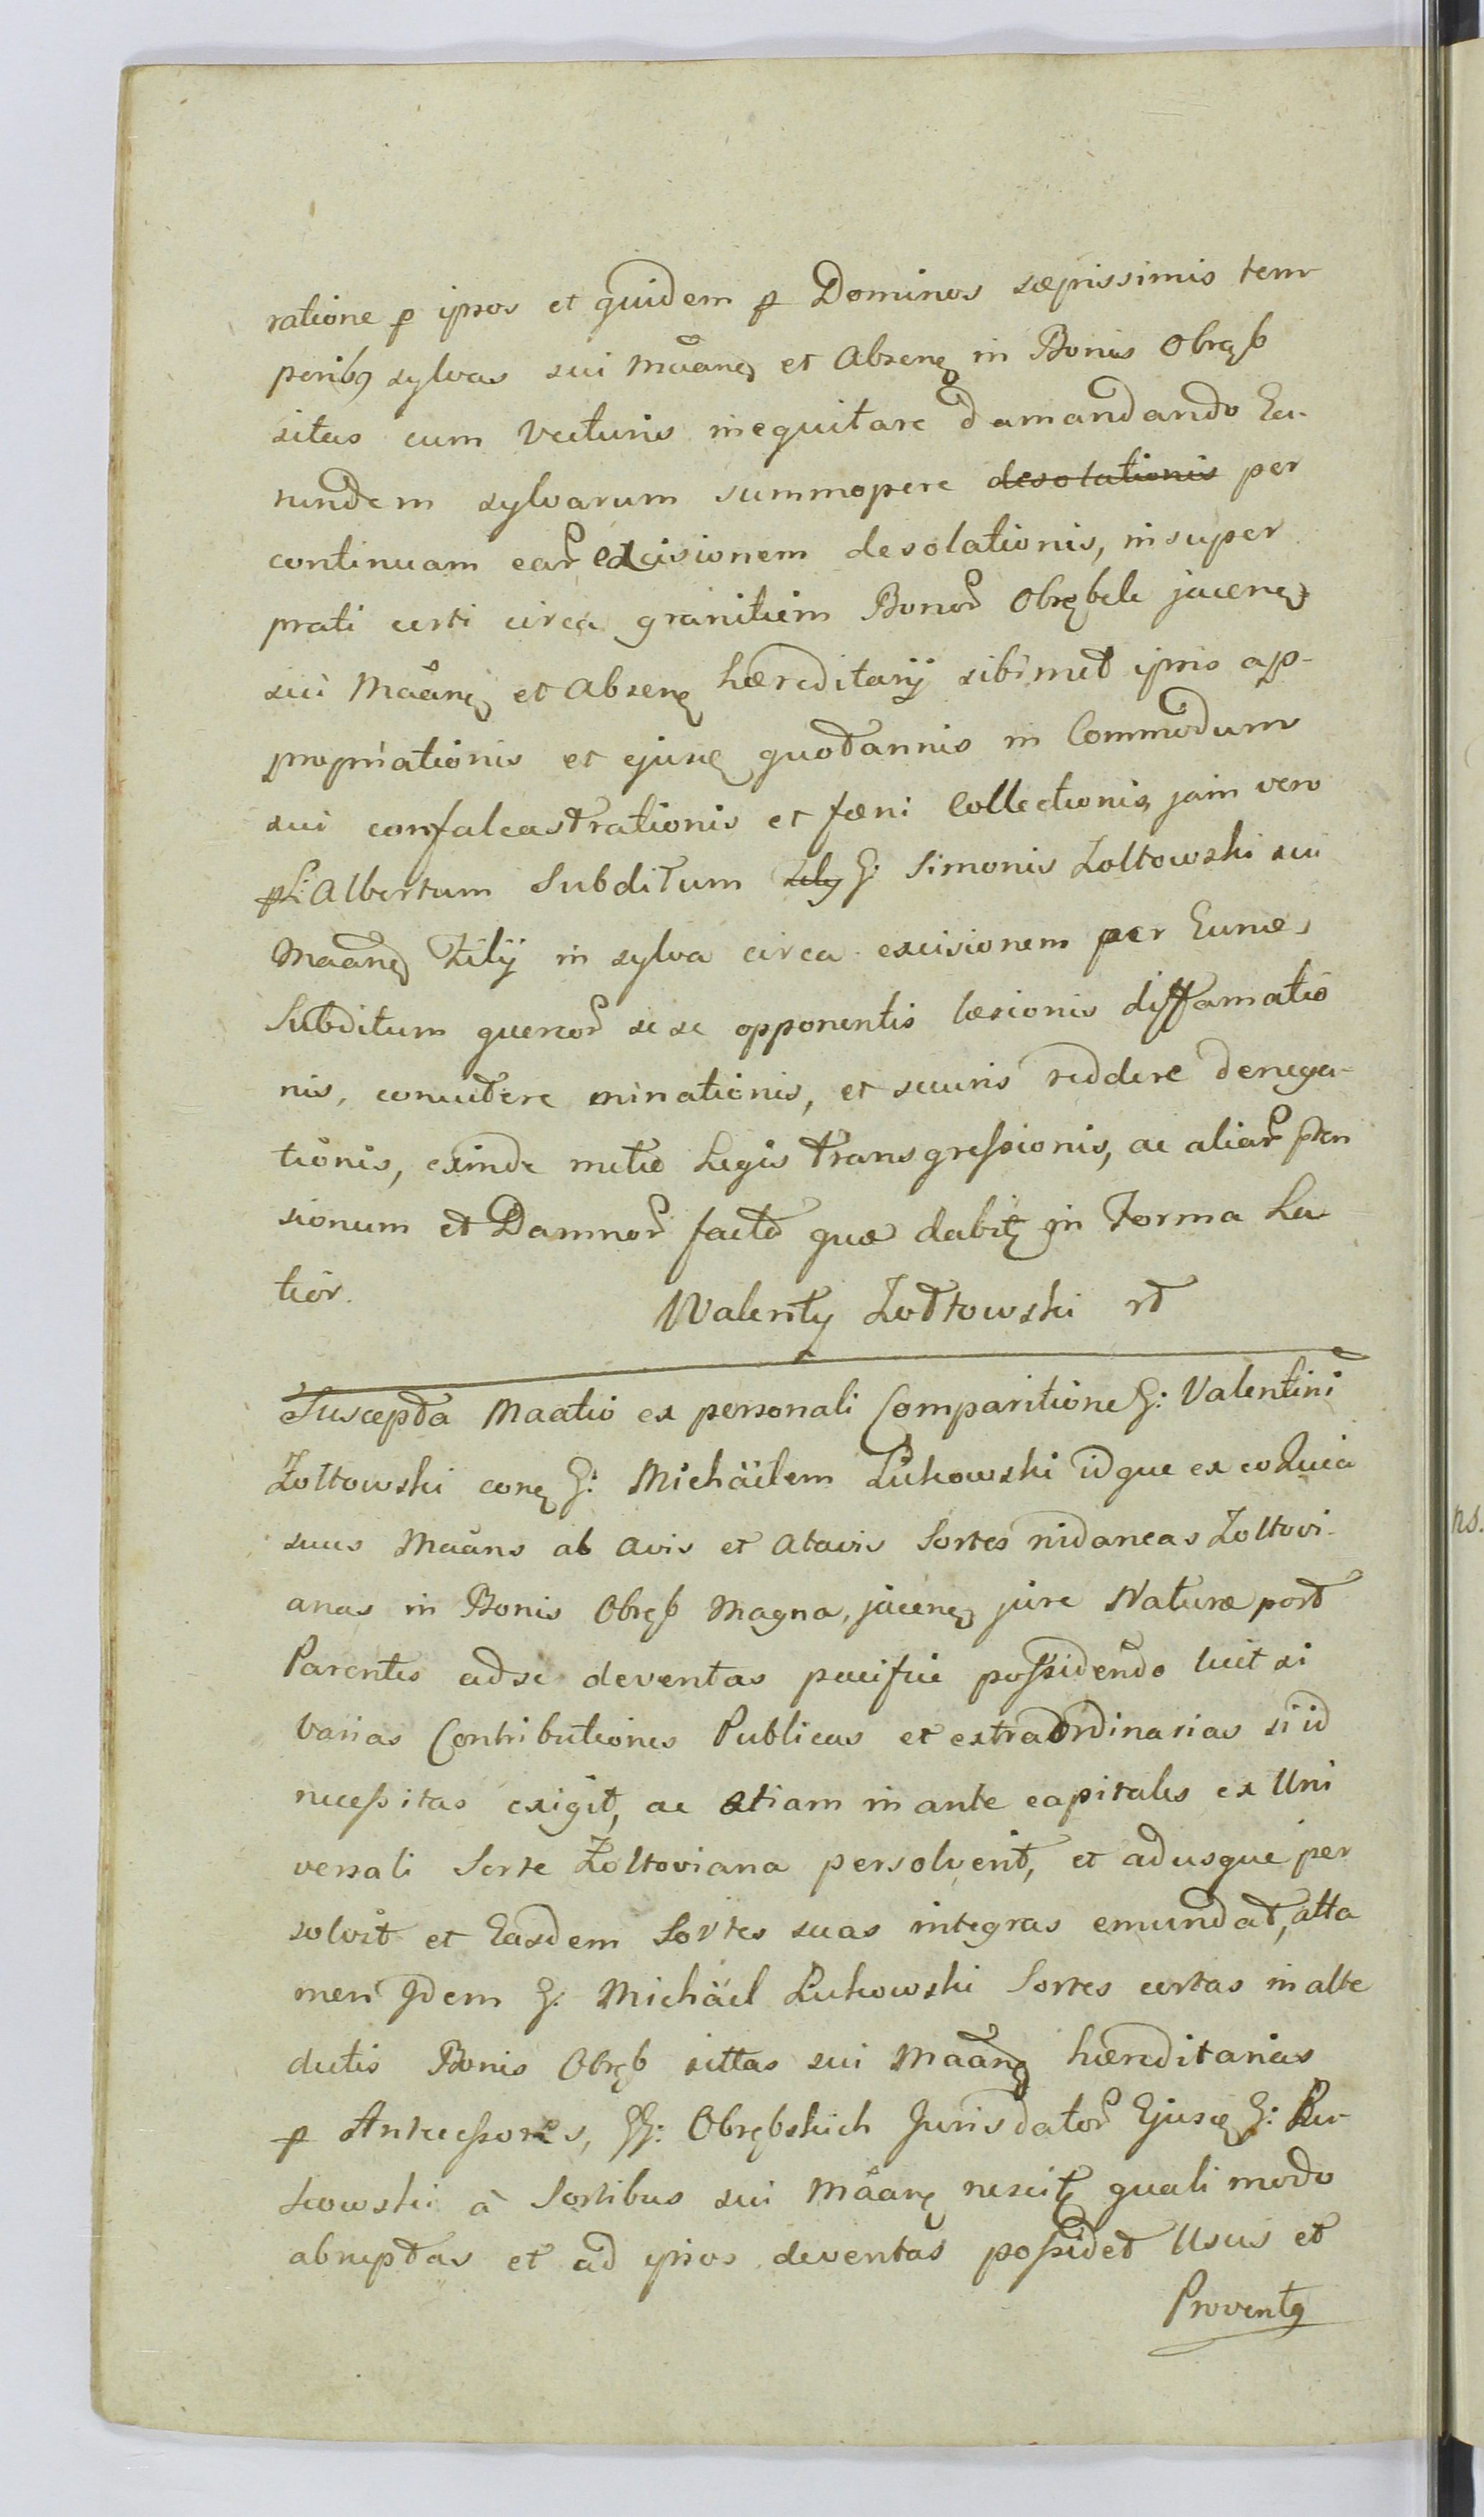 ratione p ipsos et quidem p Dominos sæpissimis tem
poribꝫ sylvas sui Mãanę et Absenę in Bonis Obręb
sitas cum Vecturis inequitare d amandando Ea-
rundem sylvarum summopere desolationis per
continuam ear excisionem desolationis, insuper
prati certi circa granitiem Bonor Obrębek jacenę
sui Mãanę et Absenę hæreditarij sibimet ipsis ap-
propriationis et ejusę quotannis in Commodum
sui confalcastrationis et fœni Collectionis, jam vero
p L: Albertum Subditum G: Simonis Zoltowski sui
Mãanę Filij in sylva circa excisionem per Eunde
Subditum quercor sese opponentis læsionis diffamatio
nis, concidere minationis, et securis reddere denega-
tionis, exinde metio Legis transgressionis, ac aliar pten
sionum et Damnor facto quæ dabitꝫ in Forma La
tior.
Walenty Zołtowski rt
Suscepta Maatio ex personali Comparitione G: Valentini
Zoltowski conę G: Michäelem Lukowski idque ex eo Quia
suus Mãans ab Avis et Atavis Sortes nidaneas Zoltovi-
anas in Bonis Obręb Magna, jacenę jure Naturæ post
Parentes ad se deventas pacifice possidendo licet si
varias Contributiones Publicas et extraordinarias si id
necessitas exigit, ac etiam in ante capitales ex Uni
versali Sorte Zoltoviana persolverit, et adusque per
solvit et Easdem Sortes suas integras emundat, atta
men Idem G: Michäel Lukowski Sortes certas in alte
dictis Bonis Obręb sittas sui Mãanę hæreditarias
p Antecessores, GG: Obrębskich Jurisdator Ejusę G: Lu-
kowski à Sortibus sui Mãanę nescitꝫ quali modo
abruptas et ad ipsos deventas possidet Usus et
Proventꝰ
ns.